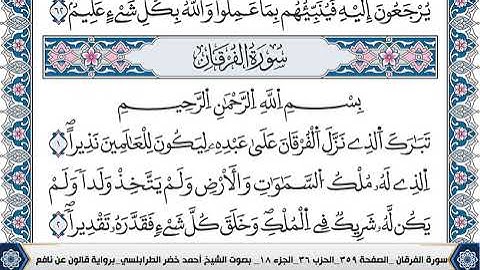 يُرْجَعُونَ إِلَيْهِ فَيُنَبِّئُهُم بِمَا عَمِلُواْ وَاللَّهُ بِكُلِّ شَيْءٍ عَلِيمٌ ٦٢
سُورَةُ الفُرْقَانِ
بِسْمِ اِللَّهِ اِلرَّحْمَٰنِ اِلرَّحِيمِ
تَبَارَكَ اَلذِے نَزَّلَ اَلْفُرْقَانَ عَلَىٰ عَبْدِهِۦ لِيَكُونَ لِلْعَالَمِينَ نَذِيراً ١
اِلذِے لَهُۥ مُلْكُ اُلسَّمَٰوَاتِ وَالْأَرْضِ وَلَمْ يَتَّخِذْ وَلَداً وَلَمْ
يَكُن لَّهُۥ شَرِيكٌ فِے اِلْمُلْكِ وَخَلَقَ كُلَّ شَيْءٍ فَقَدَّرَهُۥ تَقْدِيراً ٢
سورة الفرقان _الصفحة ٣٥٩_الحزب ٣٦_الجزء ١٨_ بصوت الشيخ أحمد خضر الطرابلسي_برواية قالون عن نافع